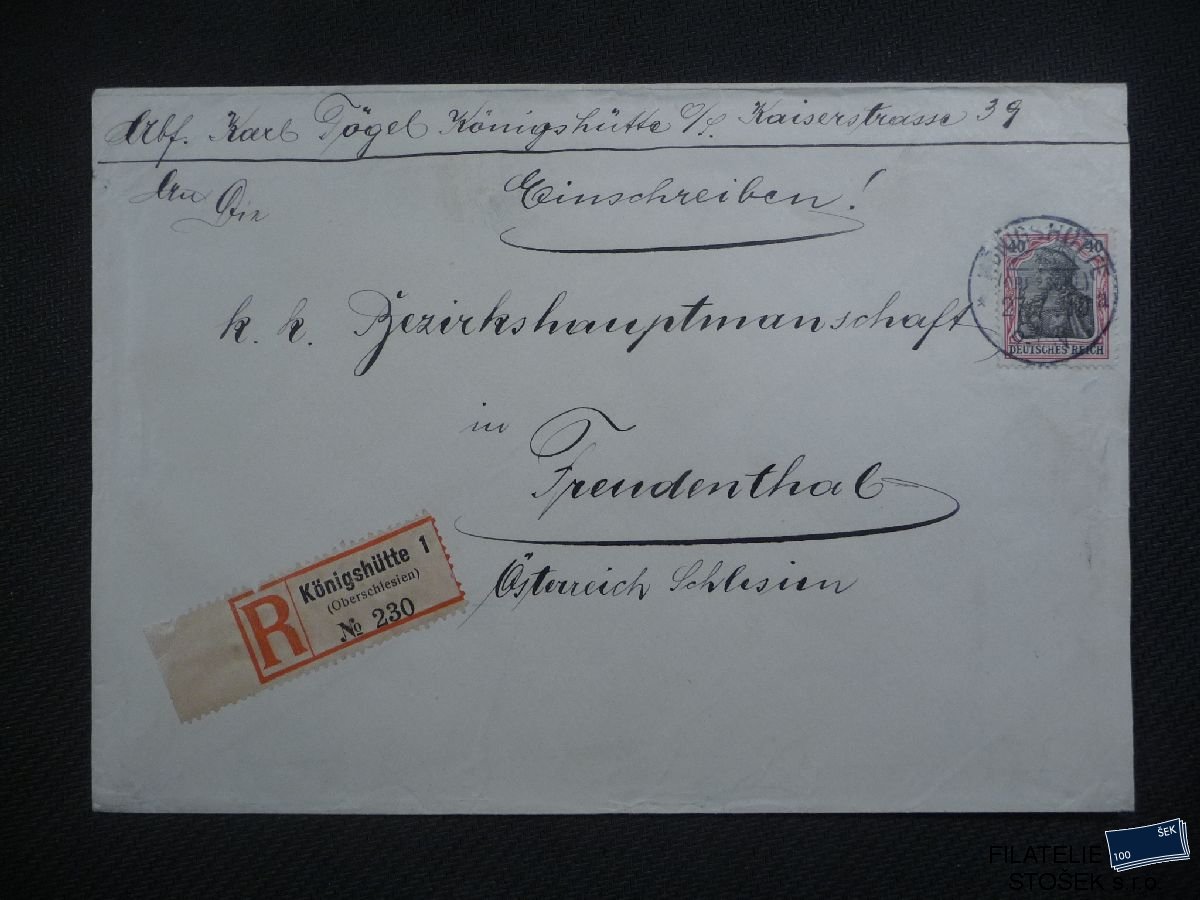 Abs. Karl Tögel Königshütte O/S. Kaiserstrasse 39
An Die
Einschreiben!
KÖNIGSHÜTTE
40 40
DEUTSCHES REICH
k. k. Bezirkshauptmannschaft
in
Freudenthal
Österreich Schlesien
R
Königshütte 1
(Oberschlesien)
№ 230
ŠEK
100
FILATELIE
STOŠEK s.r.o.